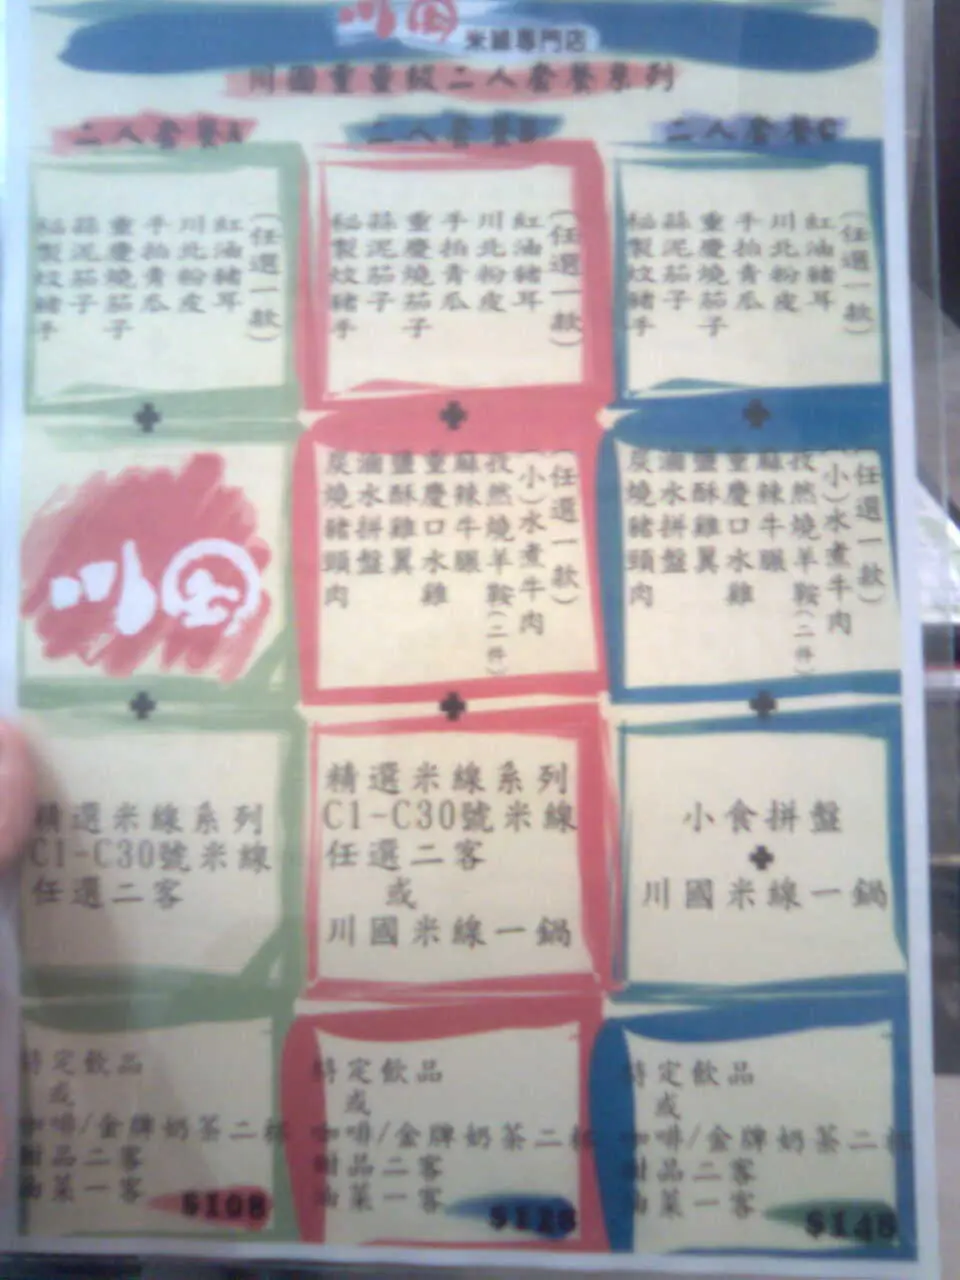 川國 米線專門店
川國重量級二人套餐系列
二人套餐A
紅油豬耳
川北粉皮
手拍青瓜
重慶燒茄子
蒜泥茄子
秘製炆豬手
(任選一款)
川國
精選米線系列
C1-C30號米線
任選二客
特定飲品
或
咖啡/金牌奶茶二杯
甜品二客
油菜一客
$108
二人套餐B
(任選一款)
紅油豬耳
川北粉皮
手拍青瓜
重慶燒茄子
蒜泥茄子
秘製炆豬手
(任選一款)
(小)水煮牛肉
孜然燒羊鞍(二件)
麻辣牛𦟌
重慶口水雞
鹽酥雞翼
滷水拼盤
炭燒豬頸肉
精選米線系列
C1-C30號米線
任選二客
或
川國米線一鍋
特定飲品
或
咖啡/金牌奶茶二杯
甜品二客
油菜一客
二人套餐C
(任選一款)
紅油豬耳
川北粉皮
手拍青瓜
重慶燒茄子
蒜泥茄子
秘製炆豬手
(任選一款)
(小)水煮牛肉
孜然燒羊鞍(二件)
麻辣牛𦟌
重慶口水雞
鹽酥雞翼
滷水拼盤
炭燒豬頸肉
小食拼盤
川國米線一鍋
特定飲品
或
咖啡/金牌奶茶二杯
甜品二客
油菜一客
$148